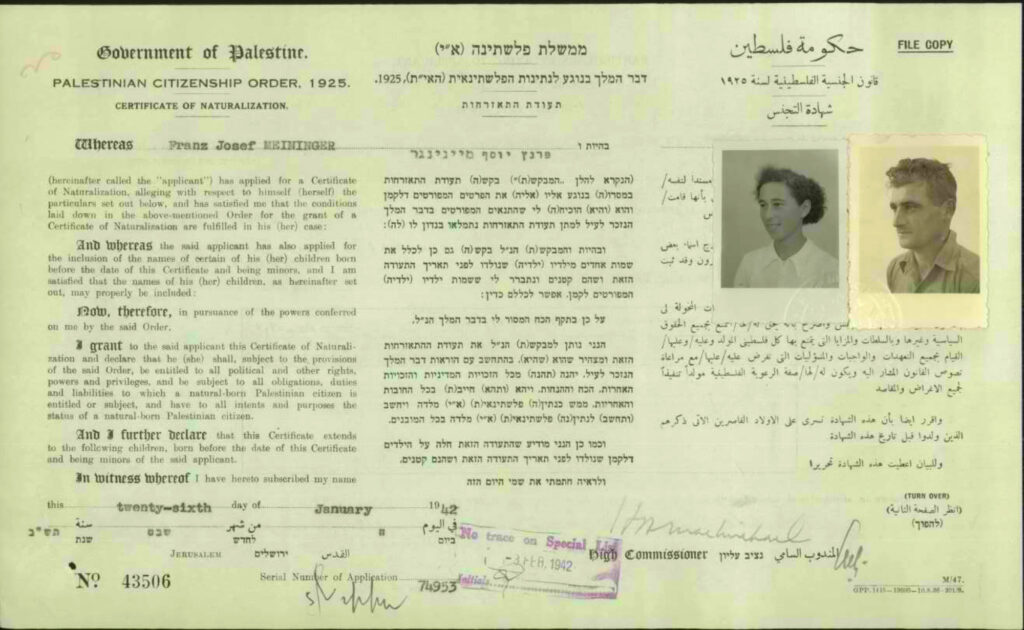 Government of Palestine.
PALESTINIAN CITIZENSHIP ORDER, 1925.
CERTIFICATE OF NATURALIZATION.
ממשלת פלשתינה (א״י)
דבר המלך בנוגע לנתינות הפלשתינאית (הא״ית), 1925.
תעודת התאזרחות
حكومة فلسطين
قانون الجنسية الفلسطينية لسنة ١٩٢٥
شهادة التجنس
FILE COPY
Whereas Franz Josef MEININGER
(hereinafter called the "applicant") has applied for a Certificate
of Naturalization, alleging with respect to himself (herself) the
particulars set out below, and has satisfied me that the conditions
laid down in the above-mentioned Order for the grant of a
Certificate of Naturalization are fulfilled in his (her) case:
And whereas the said applicant has also applied for
the inclusion of the names of certain of his (her) children born
before the date of this Certificate and being minors, and I am
satisfied that the names of his (her) children, as hereinafter set
out, may properly be included:
Now, therefore, in pursuance of the powers conferred
on me by the said Order.
I grant to the said applicant this Certificate of Naturali-
zation and declare that he (she) shall, subject to the provisions
of the said Order, be entitled to all political and other rights,
powers and privileges, and be subject to all obligations, duties
and liabilities to which a natural-born Palestinian citizen is
entitled or subject, and have to all intents and purposes the
status of a natural-born Palestinian citizen.
And I further declare that this Certificate extends
to the following children, born before the date of this Certificate
and being minors of the said applicant.
In witness whereof I have hereto subscribed my name
בהיות ו
פרנץ יוסף מיינינגר
(הנקרא להלן „המבקש(ת)") בקש(ה) תעודת התאזרחות
במסרו(ה) בנוגע אליו (אליה) את הפרטים המפורטים דלקמן
והוא (והיא) הוכיח(ה) לי שהתנאים המפורטים בדבר המלך
הנזכר לעיל למתן תעודת התאזרחות נתמלאו בנדון לו (לה):
ובהיות והמבקש(ת) הנ״ל בקש(ה) גם כן לכלל את
שמות אחדים מילדיו (ילדיה) שנולדו לפני תאריך התעודה
הזאת ושהם קטנים ונתברר לי ששמות ילדיו (ילדיה)
המפורטים לקמן, אפשר לכללם כדין:
על כן בתקף הכח המסור לי בדבר המלך הנ״ל.
הנני נותן למבקש(ת) הנ״ל את תעודת ההתאזרחות
הזאת ומצהיר שהוא (שהיא), בהתחשב עם הוראות דבר המלך
הנזכר לעיל, יהנה (תהנה) מכל הזכויות המדיניות והזכויות
האחרות, הכח וההנחות, ויהא (ותהא) חייב(ת) בכל החובות
והאחריות, ממש כנתין(ה) פלשתינאי(ת) (א״י) מלדה ויחשב
(ותחשב) לנתין(נה) פלשתינאי(ת) (א״י) מלדה בכל המובנים.
וכמו כן הנני מודיע שהתעודה הזאת חלה על הילדים
דלקמן שנולדו לפני תאריך התעודה הזאת ושהנם קטנים.
ולראיה חתמתי את שמי היום הזה
السياسية وغيرها وبالسلطات والمزايا التي يتمتع بها كل فلسطيني المولد وعليه/وعليها/
القيام بجميع التعهدات والواجبات والمسؤليات التي تفرض عليه/عليها/مع مراعاة
نصوص القانون المشار اليه ويكون له/لها/صفة الرعوية الفلسطينية مولداً تنفيذاً
لجميع الاغراض والمقاصد
واقرر ايضا بأن هذه الشهادة تسرى على الاولاد القاصرين الآتى ذكرهم
الذين ولدوا قبل تاريخ هذه الشهادة
وللبيان اعطيت هذه الشهادة تحريرا
(TURN OVER)
(انظر الصفحة الثانية)
(להפוך)
this twenty-sixth day of January 1942
في اليوم من شهر سنة
ביום ח לחדש שבט שנת תש״ב
JERUSALEM ירושלים القدس
No trace on Special List
-3 FEB. 1942
Initials
High Commissioner נציב עליון المندوب السامي
Nº 43506
Serial Number of Application 74953
M/47.